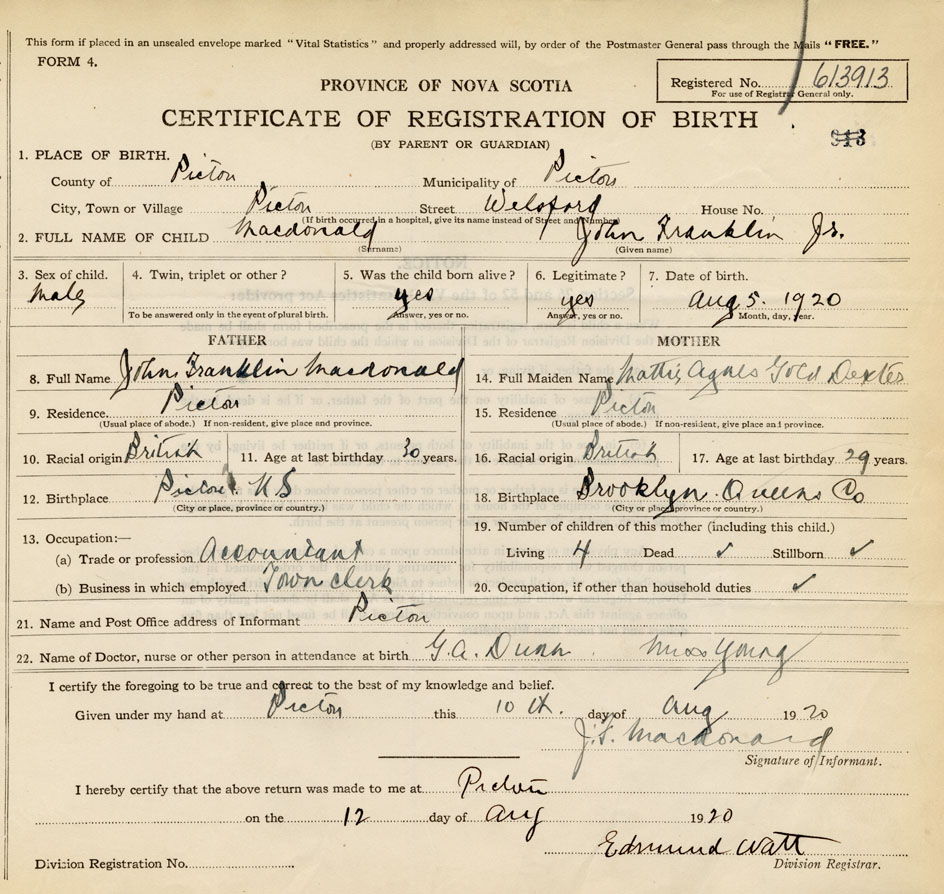 This form if placed in an unsealed envelope marked "Vital Statistics" and properly addressed will, by order of the Postmaster General pass through the Mails "FREE."
FORM 4.
Registered No. 613913
For use of Registrar General only.
PROVINCE OF NOVA SCOTIA
CERTIFICATE OF REGISTRATION OF BIRTH
(BY PARENT OR GUARDIAN)
1. PLACE OF BIRTH.
County of Picton Municipality of Picton
City, Town or Village Picton Street Welsford House No.
(If birth occurred in a hospital, give its name instead of Street and Number)
2. FULL NAME OF CHILD Macdonald John Franklin Jr.
(Surname) (Given name)
3. Sex of child. 4. Twin, triplet or other? 5. Was the child born alive? 6. Legitimate? 7. Date of birth.
Male yes yes Aug 5. 1920
To be answered only in the event of plural birth. Answer, yes or no. Answer, yes or no. Month, day, year.
FATHER MOTHER
8. Full Name John Franklin Macdonald 14. Full Maiden Name Mattie Agnes Gold Dexter
9. Residence. Picton 15. Residence Picton
(Usual place of abode.) If non-resident, give place and province. (Usual place of abode.) If non-resident, give place and province.
10. Racial origin British 11. Age at last birthday 30 years. 16. Racial origin British 17. Age at last birthday 29 years.
12. Birthplace Picton N S 18. Birthplace Brooklyn Queens Co
(City or place, province or country.) (City or place, province or country.)
13. Occupation:— 19. Number of children of this mother (including this child.)
(a) Trade or profession Accountant Living 4 Dead ✓ Stillborn ✓
(b) Business in which employed Town Clerk 20. Occupation, if other than household duties ✓
21. Name and Post Office address of Informant Picton
22. Name of Doctor, nurse or other person in attendance at birth G.A. Dunn. Miss Young
I certify the foregoing to be true and correct to the best of my knowledge and belief.
Given under my hand at Picton this 10th. day of Aug 1920
J.F. Macdonald
Signature of Informant.
I hereby certify that the above return was made to me at Picton
on the 12 day of Aug 1920
Edmund Watt
Division Registration No. Division Registrar.